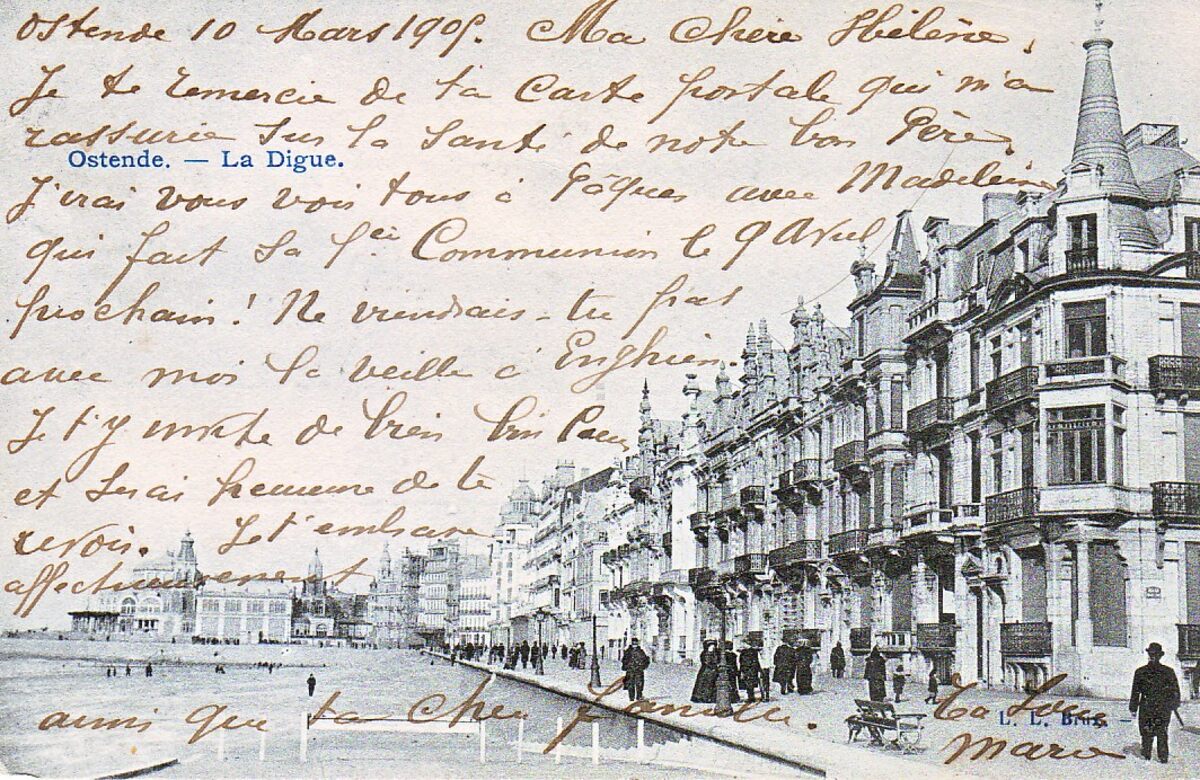 Ostende 10 Mars 1905. Ma Chère Hélène,
Je te remercie de ta Carte postale qui m'a
rassurée sur la santé de notre bon Père.
Ostende. — La Digue.
J'irai vous voir tous à Pâques avec Madeleine
qui fait sa 1ère Communion le 9 Avril
prochain! Ne viendrais-tu pas
avec moi la veille à Enghien.
Je t'y invite de bien bon
et serai heureuse de te
revoir. Je t'embrasse
affectueusement
ainsi que ta chère famille. Ta
L. L. Brux. —